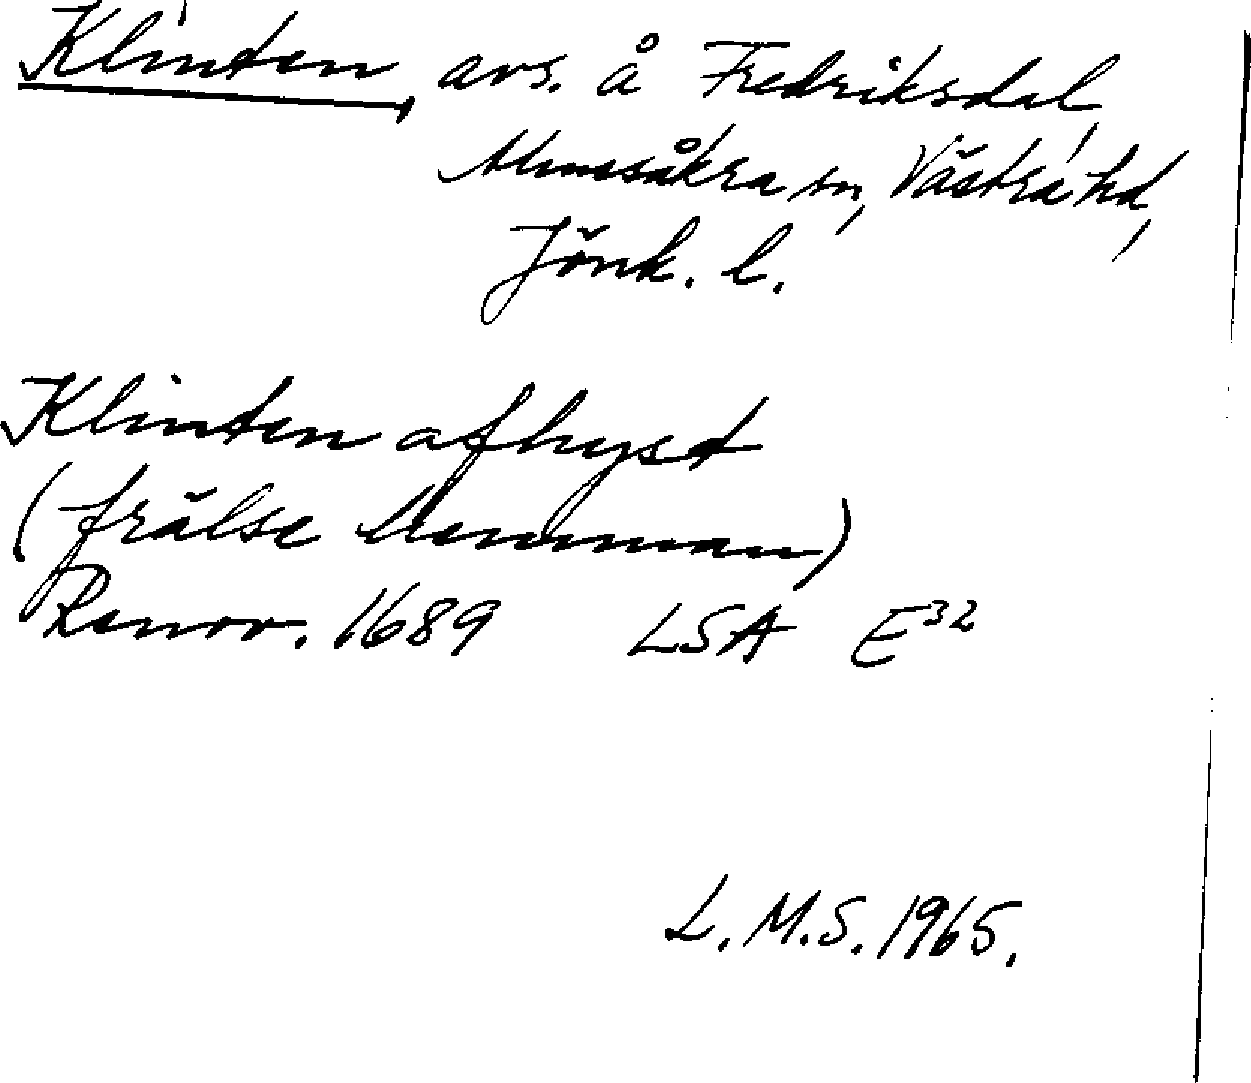 Klinten, avs. å Fredriksdal,
Almesåkra sn, Västra hd,
Jönk. l.
Klinten afhyst
(frälse Hemman)
Renov. 1689 LSA E³²
L.M.S. 1965.